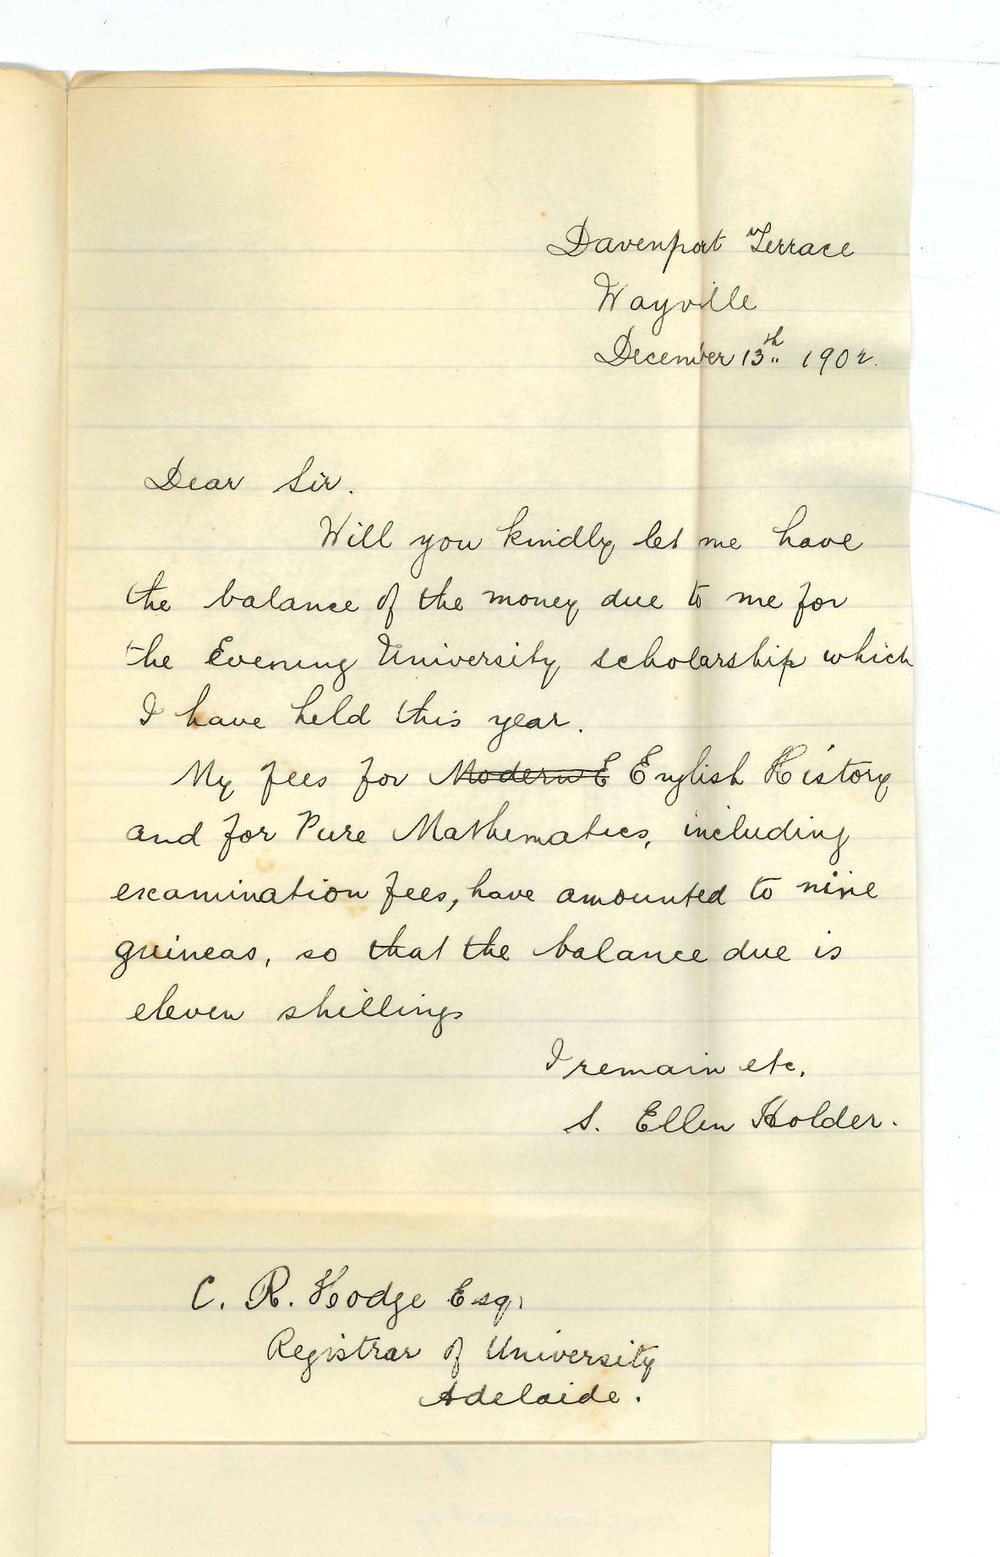 Davenport Terrace
Wayville
December 13th 1902.
Dear Sir.
Will you kindly let me have
the balance of the money due to me for
the Evening University scholarship which
I have held this year.
My fees for Modern E English History
and for Pure Mathematics, including
examination fees, have amounted to nine
guineas, so that the balance due is
eleven shillings
I remain etc.
S. Ellen Holder.
C. R. Hodge Esq,
Registrar of University
Adelaide.